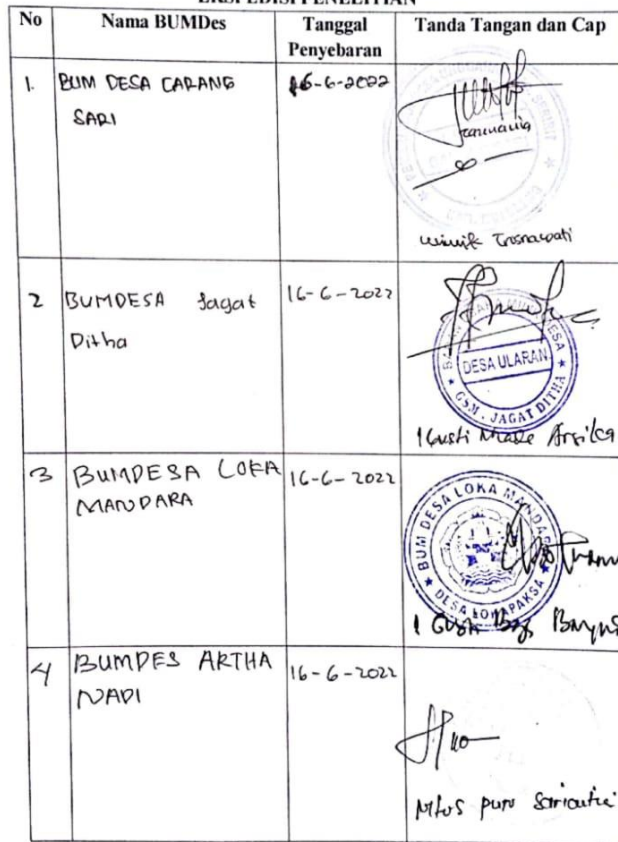 EKSPEDISI PENELITIAN
No Nama BUMDes Tanggal Penyebaran Tanda Tangan dan Cap
1. BUM DESA CARANG SARI 16-6-2022
2 BUMDESA Jagat Ditha 16-6-2022
DESA ULARAN
GSM. JAGAT DITHA
I Gusti Made
3 BUMDESA LOKA MANDARA 16-6-2022
BUM DESA LOKA MANDARA
DESA LOKAPAKSA
I Gusti Bagus
4 BUMDES ARTHA NADI 16-6-2022